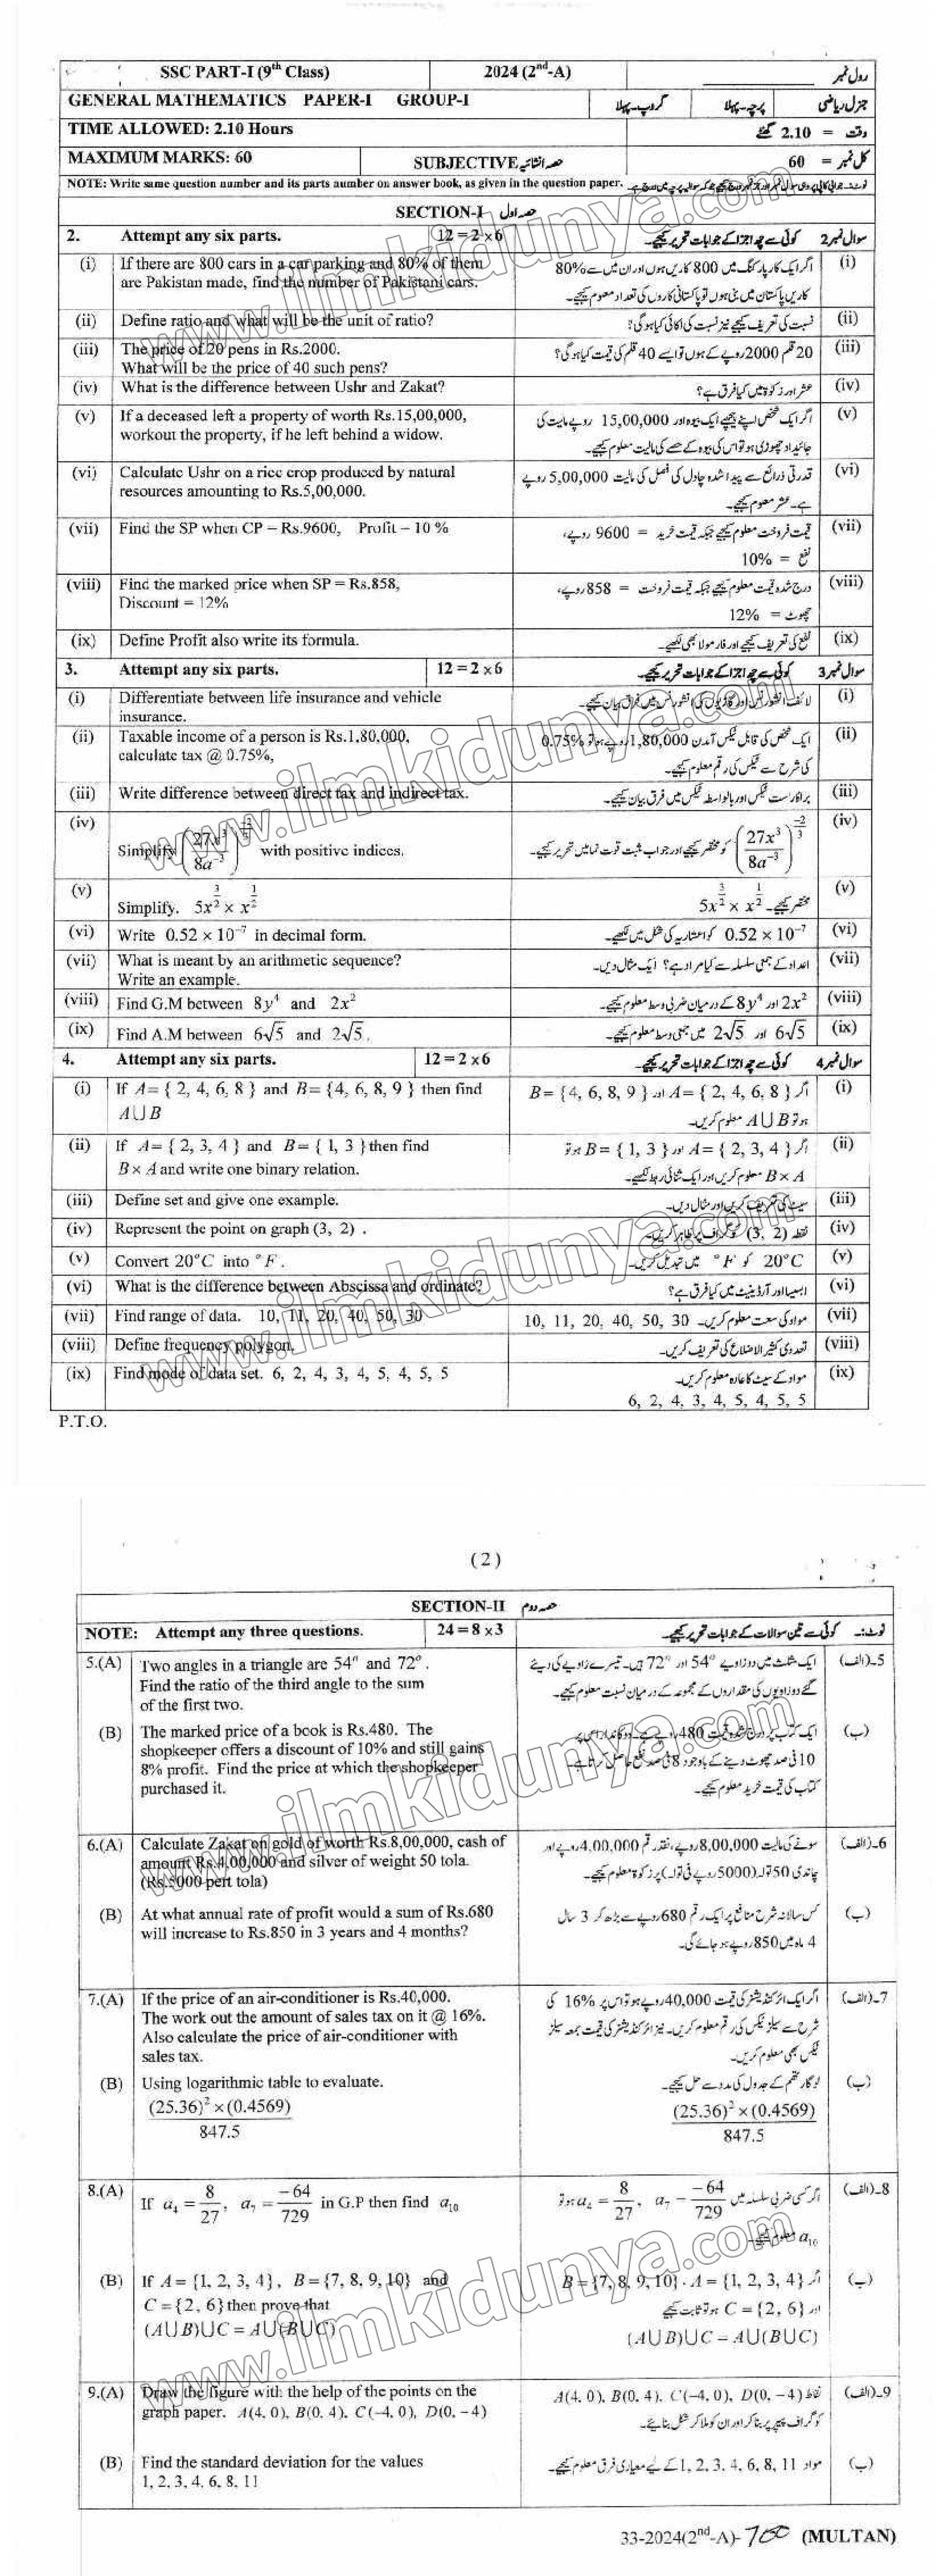 SSC PART-I (9th Class) 2024 (2nd-A) رول نمبر
GENERAL MATHEMATICS PAPER-I GROUP-I گروپ-پہلا پرچہ-پہلا جنرل ریاضی
TIME ALLOWED: 2.10 Hours وقت = 2.10 گھنٹے
MAXIMUM MARKS: 60 SUBJECTIVE حصہ انشائیہ کل نمبر = 60
NOTE: Write same question number and its parts number on answer book, as given in the question paper.
SECTION-I حصہ اول
2. Attempt any six parts. 12 = 2 × 6 کوئی سے چھ اجزا کے جوابات تحریر کیجیے۔ سوال نمبر 2
(i) If there are 800 cars in a car parking and 80% of them اگر ایک کار پارکنگ میں 800 کاریں ہوں اور ان میں سے 80% (i)
are Pakistan made, find the number of Pakistani cars. کاریں پاکستان میں بنی ہوں تو پاکستانی کاروں کی تعداد معلوم کیجیے۔
(ii) Define ratio and what will be the unit of ratio? نسبت کی تعریف کیجیے نیز نسبت کی اکائی کیا ہوگی؟ (ii)
(iii) The price of 20 pens in Rs.2000. 20 قلم 2000 روپے کے ہوں تو ایسے 40 قلم کی قیمت کیا ہوگی؟ (iii)
What will be the price of 40 such pens?
(iv) What is the difference between Ushr and Zakat? عشر اور زکوٰۃ میں کیا فرق ہے؟ (iv)
(v) If a deceased left a property of worth Rs.15,00,000, اگر ایک شخص اپنے پیچھے ایک بیوہ اور 15,00,000 روپے مالیت کی (v)
workout the property, if he left behind a widow. جائیداد چھوڑی ہو تو اس کی بیوہ کے حصے کی مالیت معلوم کیجیے۔
(vi) Calculate Ushr on a rice crop produced by natural قدرتی ذرائع سے پیدا شدہ چاول کی فصل کی مالیت 5,00,000 روپے (vi)
resources amounting to Rs.5,00,000. ہے۔ عشر معلوم کیجیے۔
(vii) Find the SP when CP – Rs.9600, Profit – 10 % قیمت فروخت معلوم کیجیے جبکہ قیمت خرید = 9600 روپے، (vii)
نفع = 10%
(viii) Find the marked price when SP = Rs.858, درج شدہ قیمت معلوم کیجیے جبکہ قیمت فروخت = 858 روپے، (viii)
Discount = 12% چھوٹ = 12%
(ix) Define Profit also write its formula. نفع کی تعریف کیجیے اور فارمولا بھی لکھیے۔ (ix)
3. Attempt any six parts. 12 = 2 × 6 کوئی سے چھ اجزا کے جوابات تحریر کیجیے۔ سوال نمبر 3
(i) Differentiate between life insurance and vehicle لائف انشورنس اور گاڑیوں کی انشورنس میں فرق بیان کیجیے۔ (i)
insurance.
(ii) Taxable income of a person is Rs.1,80,000, ایک شخص کی قابل ٹیکس آمدن 1,80,000 روپے ہو تو 0.75% (ii)
calculate tax @ 0.75%, کی شرح سے ٹیکس کی رقم معلوم کیجیے۔
(iii) Write difference between direct tax and indirect tax. براہ راست ٹیکس اور بالواسطہ ٹیکس میں فرق بیان کیجیے۔ (iii)
(iv) Simplify (27x³/8a⁻³)^(-2/3) with positive indices. (27x³/8a⁻³)^(-2/3) کو مختصر کیجیے اور جواب مثبت قوت نما میں تحریر کیجیے۔ (iv)
(v) Simplify. 5x^(3/2) × x^(1/2) مختصر کیجیے۔ 5x^(3/2) × x^(1/2) (v)
(vi) Write 0.52 × 10⁻⁷ in decimal form. 0.52 × 10⁻⁷ کو اعشاریہ کی شکل میں لکھیے۔ (vi)
(vii) What is meant by an arithmetic sequence? اعداد کے جمعی سلسلہ سے کیا مراد ہے؟ ایک مثال دیں۔ (vii)
Write an example.
(viii) Find G.M between 8y⁴ and 2x² 2x² اور 8y⁴ کے درمیان ضربی وسط معلوم کیجیے۔ (viii)
(ix) Find A.M between 6√5 and 2√5. 6√5 اور 2√5 میں جمعی وسط معلوم کیجیے۔ (ix)
4. Attempt any six parts. 12 = 2 × 6 کوئی سے چھ اجزا کے جوابات تحریر کیجیے۔ سوال نمبر 4
(i) If A = { 2, 4, 6, 8 } and B = {4, 6, 8, 9 } then find اگر A = { 2, 4, 6, 8 } اور B = {4, 6, 8, 9 } (i)
A∪B ہو تو A∪B معلوم کریں۔
(ii) If A = { 2, 3, 4 } and B = { 1, 3 } then find اگر A = { 2, 3, 4 } اور B = { 1, 3 } ہو تو (ii)
B × A and write one binary relation. B × A معلوم کریں اور ایک ثنائی ربط لکھیے۔
(iii) Define set and give one example. سیٹ کی تعریف کریں اور مثال دیں۔ (iii)
(iv) Represent the point on graph (3, 2) . نقطہ (3, 2) کو گراف پر ظاہر کریں۔ (iv)
(v) Convert 20°C into °F. 20°C کو °F میں تبدیل کریں۔ (v)
(vi) What is the difference between Abscissa and ordinate? ایبسیسا اور آرڈینیٹ میں کیا فرق ہے؟ (vi)
(vii) Find range of data. 10, 11, 20, 40, 50, 30 مواد کی سعت معلوم کریں۔ 10, 11, 20, 40, 50, 30 (vii)
(viii) Define frequency polygon. تعددی کثیر الاضلاع کی تعریف کریں۔ (viii)
(ix) Find mode of data set. 6, 2, 4, 3, 4, 5, 4, 5, 5 مواد کے سیٹ کا عادہ معلوم کریں۔ (ix)
6, 2, 4, 3, 4, 5, 4, 5, 5
P.T.O.
(2)
SECTION-II حصہ دوم
NOTE: Attempt any three questions. 24 = 8 × 3 نوٹ:۔ کوئی سے تین سوالات کے جوابات تحریر کیجیے۔
5.(A) Two angles in a triangle are 54° and 72°. ایک مثلث میں دو زاویے 54° اور 72° ہیں۔ تیسرے زاویے کی دیئے 5۔(الف)
Find the ratio of the third angle to the sum گئے دو زاویوں کی مقداروں کے مجموعہ کے درمیان نسبت معلوم کیجیے۔
of the first two.
(B) The marked price of a book is Rs.480. The ایک کتاب پر درج شدہ قیمت 480 روپے ہے۔ دوکاندار اس پر (ب)
shopkeeper offers a discount of 10% and still gains 10 فی صد چھوٹ دینے کے باوجود 8 فی صد نفع حاصل کرتا ہے۔
8% profit. Find the price at which the shopkeeper کتاب کی قیمت خرید معلوم کیجیے۔
purchased it.
6.(A) Calculate Zakat on gold of worth Rs.8,00,000, cash of سونے کی مالیت 8,00,000 روپے، نقد رقم 4,00,000 روپے اور 6۔(الف)
amount Rs.4,00,000 and silver of weight 50 tola. چاندی 50 تولہ (5000 روپے فی تولہ) پر زکوٰۃ معلوم کیجیے۔
(Rs.5000 pert tola)
(B) At what annual rate of profit would a sum of Rs.680 کس سالانہ شرح منافع پر ایک رقم 680 روپے سے بڑھ کر 3 سال (ب)
will increase to Rs.850 in 3 years and 4 months? 4 ماہ میں 850 روپے ہو جائے گی۔
7.(A) If the price of an air-conditioner is Rs.40,000. اگر ایک ائر کنڈیشنر کی قیمت 40,000 روپے ہو تو اس پر 16% کی 7۔(الف)
The work out the amount of sales tax on it @ 16%. شرح سے سیلز ٹیکس کی رقم معلوم کریں۔ نیز ائر کنڈیشنر کی قیمت بمعہ سیلز
Also calculate the price of air-conditioner with ٹیکس بھی معلوم کریں۔
sales tax.
(B) Using logarithmic table to evaluate. لوگارتھم کے جدول کی مدد سے حل کیجیے۔ (ب)
(25.36)² × (0.4569) (25.36)² × (0.4569)
847.5 847.5
8.(A) If a₄ = 8/27, a₇ = -64/729 in G.P then find a₁₀ اگر کسی ضربی سلسلہ میں a₇ – -64/729, a₄ = 8/27 ہو تو 8۔(الف)
a₁₀ معلوم کیجیے۔
(B) If A = {1, 2, 3, 4}, B = {7, 8, 9, 10} and اگر A = {1, 2, 3, 4} , B = {7, 8, 9, 10} (ب)
C = {2, 6} then prove that اور C = {2, 6} ہو تو ثابت کیجیے
(A∪B)∪C = A∪(B∪C) (A∪B)∪C = A∪(B∪C)
9.(A) Draw the figure with the help of the points on the نقاط A(4, 0), B(0, 4), C(-4, 0), D(0, -4) 9۔(الف)
graph paper. A(4, 0), B(0, 4), C(-4, 0), D(0, -4) کو گراف پیپر پر بنا کر اور ان کو ملا کر شکل بنائیے۔
(B) Find the standard deviation for the values مواد 1, 2, 3, 4, 6, 8, 11 کے لیے معیاری فرق معلوم کیجیے۔ (ب)
1, 2, 3, 4, 6, 8, 11
33-2024(2nd-A)-700 (MULTAN)
www.ilmkidunya.com
www.ilmkidunya.com
www.ilmkidunya.com
www.ilmkidunya.com
www.ilmkidunya.com